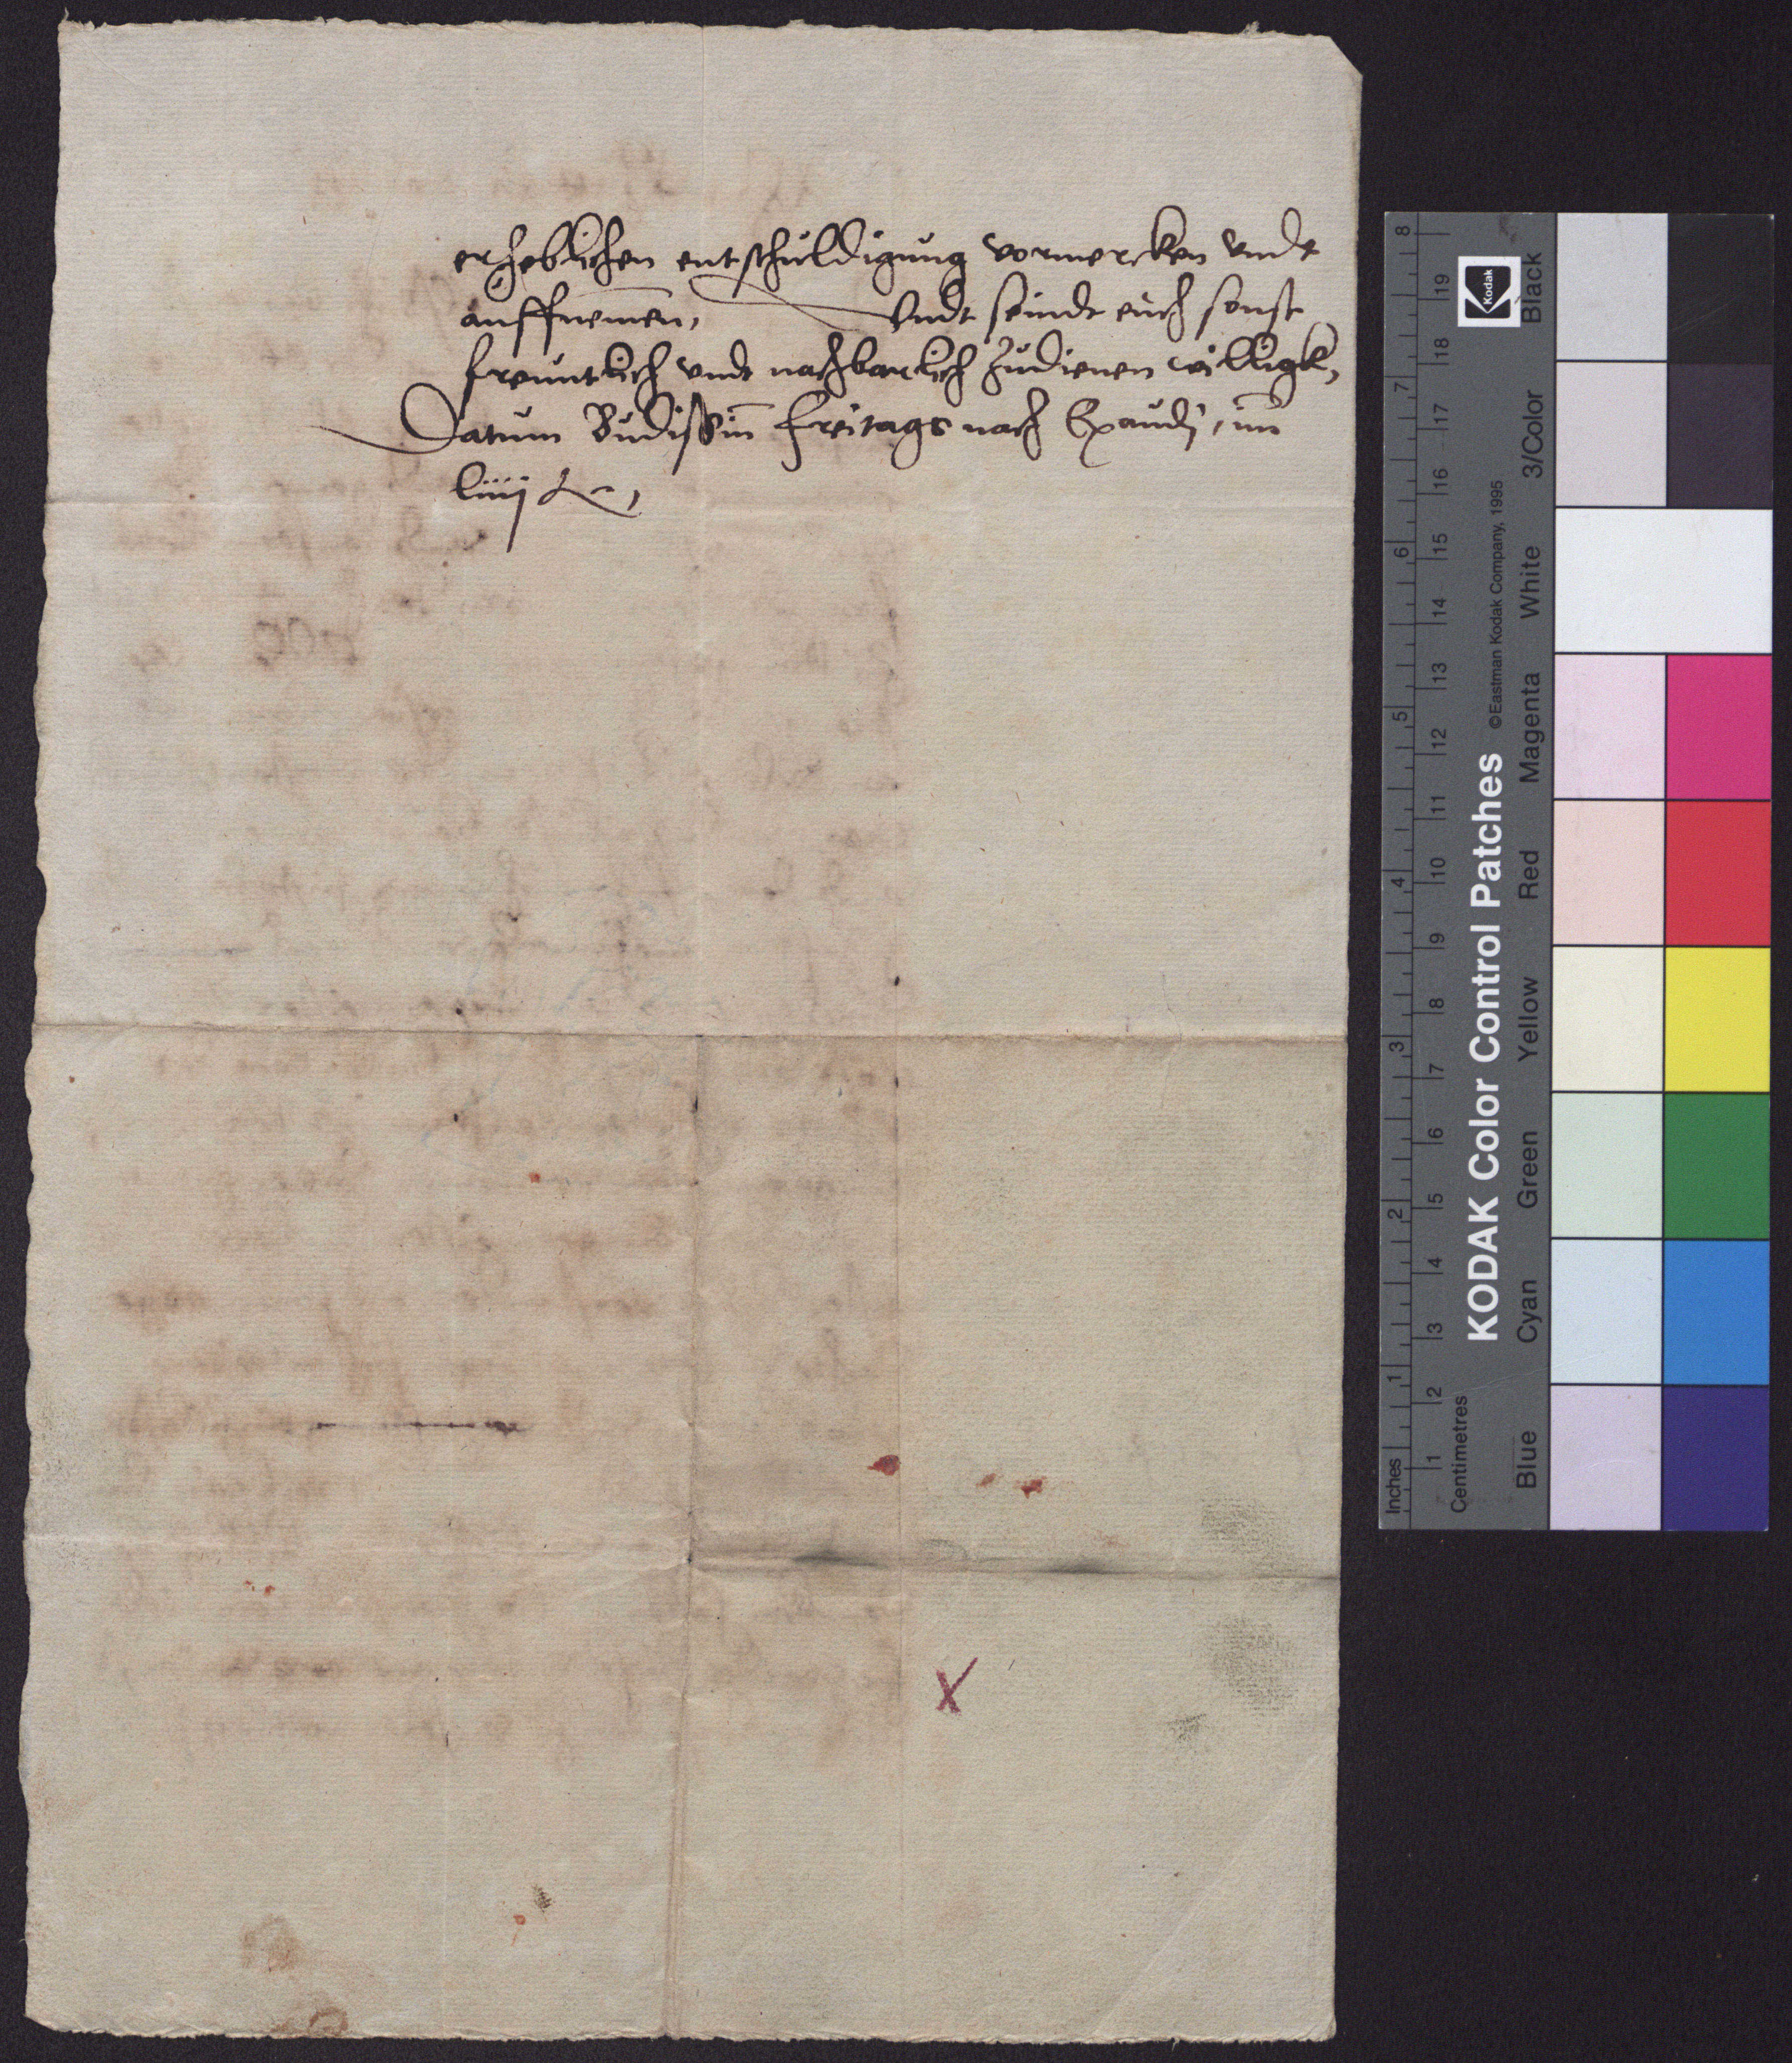 erheblichen entschuldigung vormercken vndt
auffnemen, Vndt seindt euch sonst
freuntlich vndt nachbarlich zudienen willigk,
Datum Budissin freitags nach Exaudj, im
liiij
KODAK Color Control Patches
©Eastman Kodak Company, 1995
Kodak
Inches 1 2 3 4 5 6 7 8
Centimetres 1 2 3 4 5 6 7 8 9 10 11 12 13 14 15 16 17 18 19
Blue Cyan Green Yellow Red Magenta White 3/Color Black
X